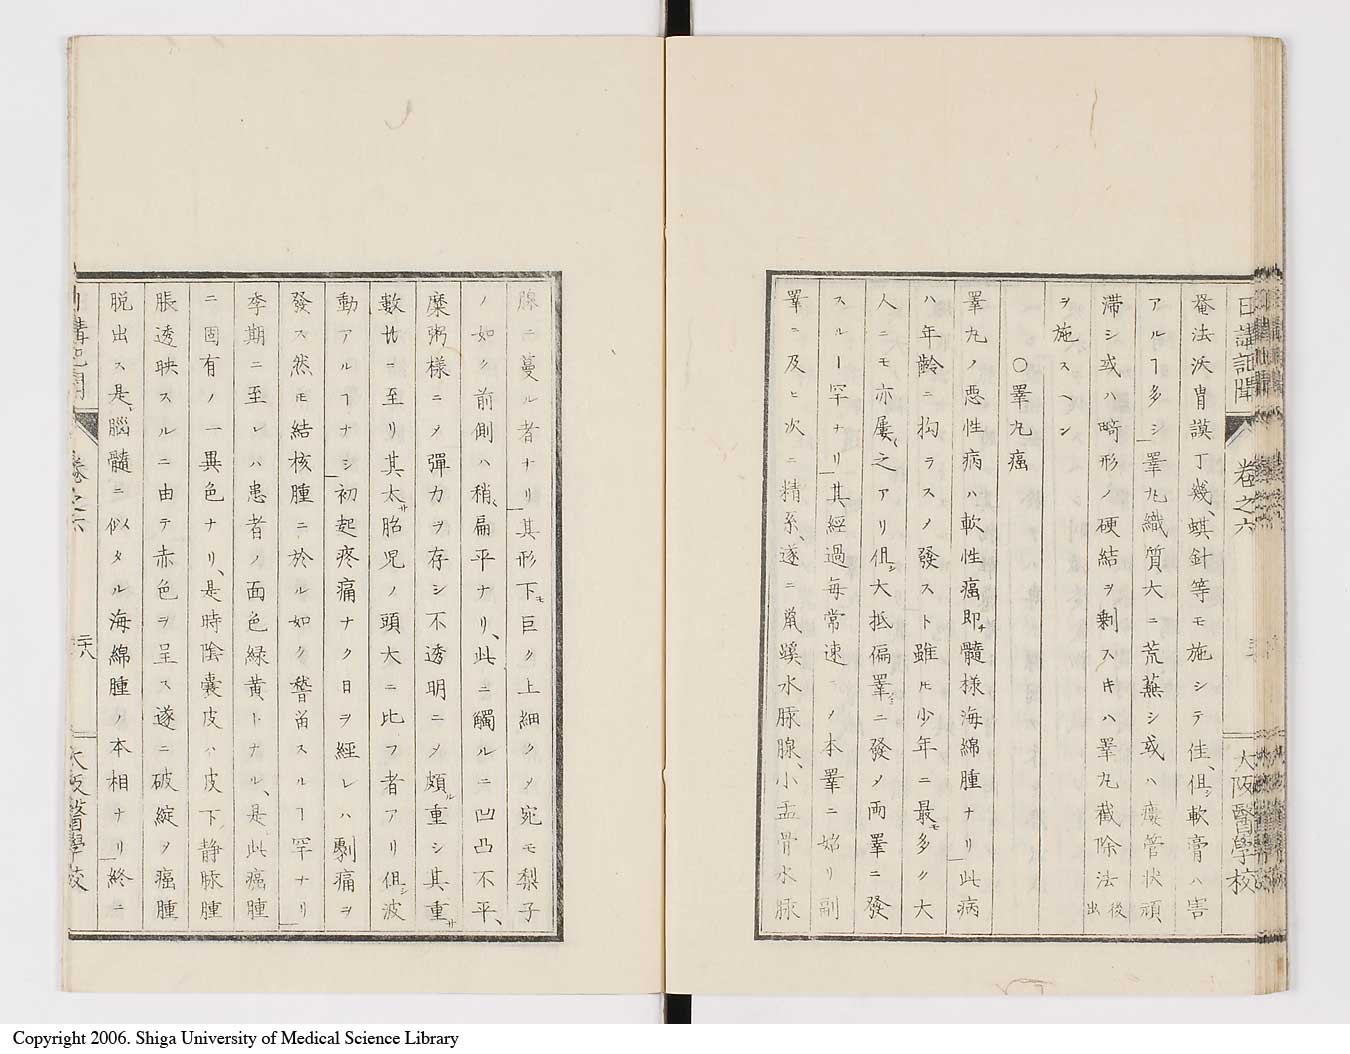 日講記聞
卷之六
大阪醫學校
菴法沃胄謨丁幾、蜞針等モ施シテ佳、但シ軟膏ハ害
アルヿ多シ睾丸織質大ニ荒蕪シ或ハ瘻管状頑
滞シ或ハ畸形ノ硬結ヲ剰スキハ睾丸截除法後出
ヲ施スヘシ
〇睾丸癌
睾丸ノ悪性病ハ軟性癌即チ髓様海綿腫ナリ此病
ハ年齢ニ拘ラスノ發スト雖𪜈少年ニ最モ多ク大
人ニモ亦屢之アリ但シ大抵偏睾ニ發メ両睾ニ發
スルヿ罕ナリ其經過毎常速ニノ本睾ニ始リ副
睾ニ及ヒ次ニ精系、遂ニ鼠蹊水脉腺、小盂骨水脉
腺ニ蔓ル者ナリ其形下モ巨ク上細クメ宛モ梨子
ノ如ク前側ハ稍扁平ナリ、此ニ觸ルニ凹凸不平、
糜粥様ニメ彈力ヲ存シ不透明ニメ頗ル重シ其重サ
數ニ至リ其太サ胎児ノ頭大ニ比フ者アリ但シ波
動アルヿナシ初起疼痛ナク日ヲ經レハ劇痛ヲ
發ス然𪜈結核腫ニ於ル如ク瞀甾スルヿ罕ナリ
季期ニ至レハ患者ノ面色緑黄トナル、是此癌腫
ニ固有ノ一異色ナリ、是時陰嚢皮ハ皮下静脉腫
脹透映スルニ由テ赤色ヲ呈ス遂ニ破綻メ癌腫
脱出ス是、腦髓ニ似タル海綿腫ノ本相ナリ終ニ
卷之六
二十八
大阪醫學校
Copyright 2006. Shiga University of Medical Science Library